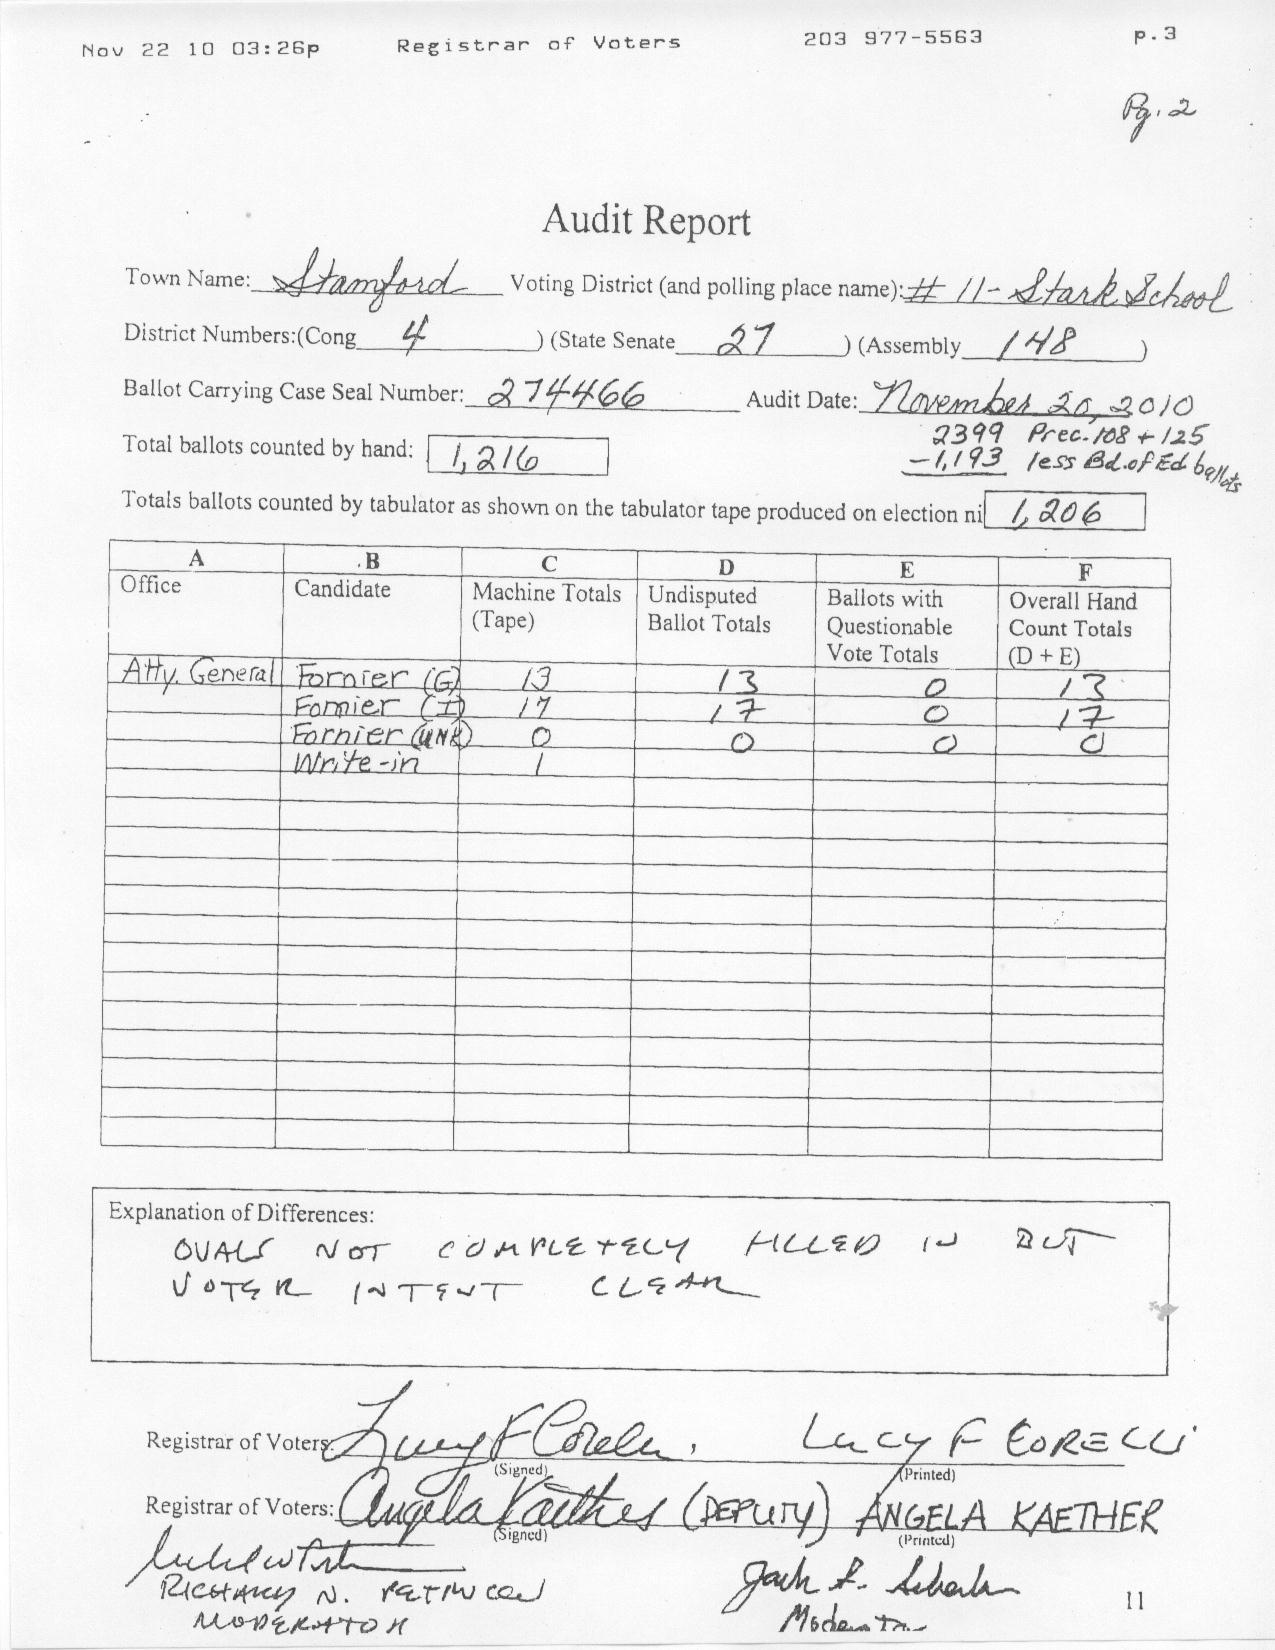 Nov 22 10 03:26p Registrar of Voters 203 977-5563 p.3
Pg. 2
Audit Report
Town Name: Stamford Voting District (and polling place name): # 11- Stark School
District Numbers:(Cong 4 ) (State Senate 27 ) (Assembly 148 )
Ballot Carrying Case Seal Number: 274466 Audit Date: November 20, 2010
2399 Prec. 108 + 125
Total ballots counted by hand: 1,216 -1,193 less Bd. of Ed ballots
Totals ballots counted by tabulator as shown on the tabulator tape produced on election ni 1,206
A B C D E F
Office Candidate Machine Totals (Tape) Undisputed Ballot Totals Ballots with Questionable Vote Totals Overall Hand Count Totals (D + E)
Atty. General Fornier (G) 13 13 0 13
Fornier (I) 17 17 0 17
Fornier (UNK) 0 0 0 0
Write-in 1
Explanation of Differences:
OVALS NOT COMPLETELY FILLED IN BUT
VOTER INTENT CLEAR
Registrar of Voters: Lucy F Corelli LUCY F CORELLI
(Signed) (Printed)
Registrar of Voters: Angela Kaether (DEPUTY) ANGELA KAETHER
(Signed) (Printed)
RICHARD N.
MODERATOR Moderator
11